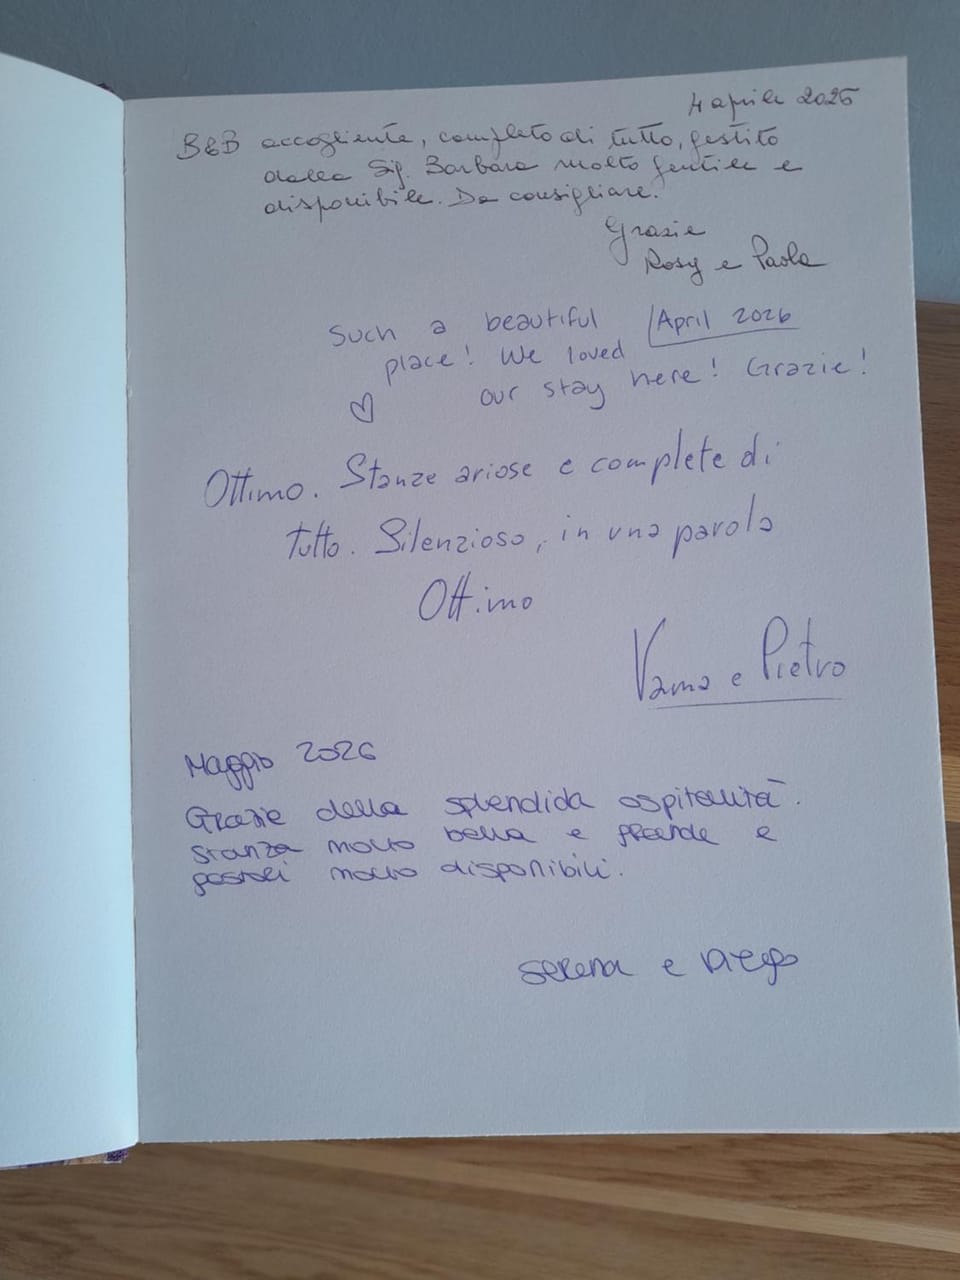 4 aprile 2026
B&B accogliente, completo di tutto, gestito
dalla Sig. Barbara molto gentile e
disponibile. Da consigliare.
Grazie
Rosy e Paola
Such a beautiful
April 2026
place! We loved
our stay here! Grazie!
Ottimo. Stanze ariose e complete di
tutto. Silenzioso, in una parola
Ottimo
e Pietro
Maggio 2026
Grazie della splendida ospitalità.
stanza molto bella e grande e
gestori molto disponibili.
Serena e Diego